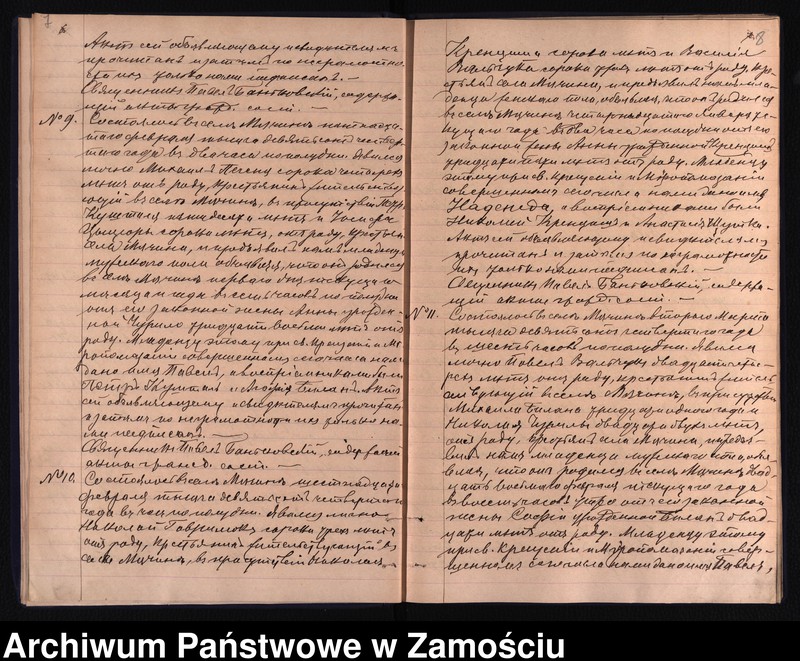 7
Актъ сей объявляющему и свидѣтелямъ
прочитанъ и затѣмъ по неграмотно
сти ихъ только нами подписанъ. —
Священникъ Павелъ содержа-
щій акты гражд. состоя. —
№ 9.
Состоялось въ селѣ Мячинъ пятнадца-
таго февраля тысяча девятьсотъ четвер-
таго года въ два часа по полудни. Явился
лично Михаилъ сорока четырехъ
лѣтъ отъ роду, крестьянинъ жительству-
ющій въ селѣ Мячинъ, въ присутствіи
пятидесяти лѣтъ и Іосифа
сорока лѣтъ, отъ роду, крестьянъ
села Мячина, и предъявилъ намъ младенца
мужескаго пола объявляя, что онъ родился
въ селѣ Мячинъ перваго текущаго
мѣсяца и года въ семь часовъ по полудни
отъ его законной жены Анны урожден-
ной Чурило тридцати восьми лѣтъ отъ
роду. Младенцу этому при св. Крещеніи и Му-
ропомазаніи совершенномъ сего числа нами
дано имя Павелъ, а воспріемниками были
Петръ и Марія Билянъ. Актъ
сей объявляющему и свидѣтелямъ прочитанъ
и затѣмъ по неграмотности ихъ только на-
ми подписанъ. —
Священникъ Павелъ содержащій
акты гражд. состоя. —
№ 10.
Состоялось въ селѣ Мячинъ шестнадцатаго
февраля тысяча девятьсотъ четвертаго
года въ часъ по полудни. Явился лично
Николай Гаврилюкъ сорока трехъ лѣтъ
отъ роду, крестьянинъ жительствующій въ
селѣ Мячинъ, въ присутствіи Николая
8
сорока лѣтъ и Василія
сорока трехъ лѣтъ отъ роду, кре-
стьянъ села Мячина, и предъявилъ намъ мла-
денца женскаго пола, объявляя, что онъ родился
въ селѣ Мячинъ четырнадцатаго Января те-
кущаго года въ два часа по полудни отъ его
законной жены Анны урожденной
тридцати пяти лѣтъ отъ роду. Младенцу
этому при св. Крещеніи и Муропомазаніи
совершенномъ сего числа нами дано имя
Надежда, а воспріемниками были
Николай и Анастасія
Актъ сей объявляющему и свидѣтелямъ
прочитанъ и затѣмъ по неграмотности
ихъ только нами подписанъ. —
Священникъ Павелъ содержа-
щій акты гражд. состоя. —
№ 11.
Состоялось въ селѣ Мячинъ втораго Марта
тысяча девятьсотъ четвертаго года
въ шесть часовъ по полудни. Явился
лично Павелъ двадцати четы-
рехъ лѣтъ отъ роду, крестьянинъ житель-
ствующій въ селѣ Мячинъ, въ присутствіи
Михаила Билана тридцати одного года и
Николая Чурилы двадцати лѣтъ,
отъ роду, крестьянъ села Мячина, предъя-
вилъ намъ младенца мужескаго пола, объя-
вляя, что онъ родился въ селѣ Мячинъ двад-
цать восьмаго февраля текущаго года
въ восемь часовъ утра отъ его законной
жены Софіи урожденной Биланъ двад-
цати лѣтъ отъ роду. Младенцу этому
при св. Крещеніи и Муропомазаніи совер-
шенномъ сего числа нами дано имя Павелъ,
Archiwum Państwowe w Zamościu